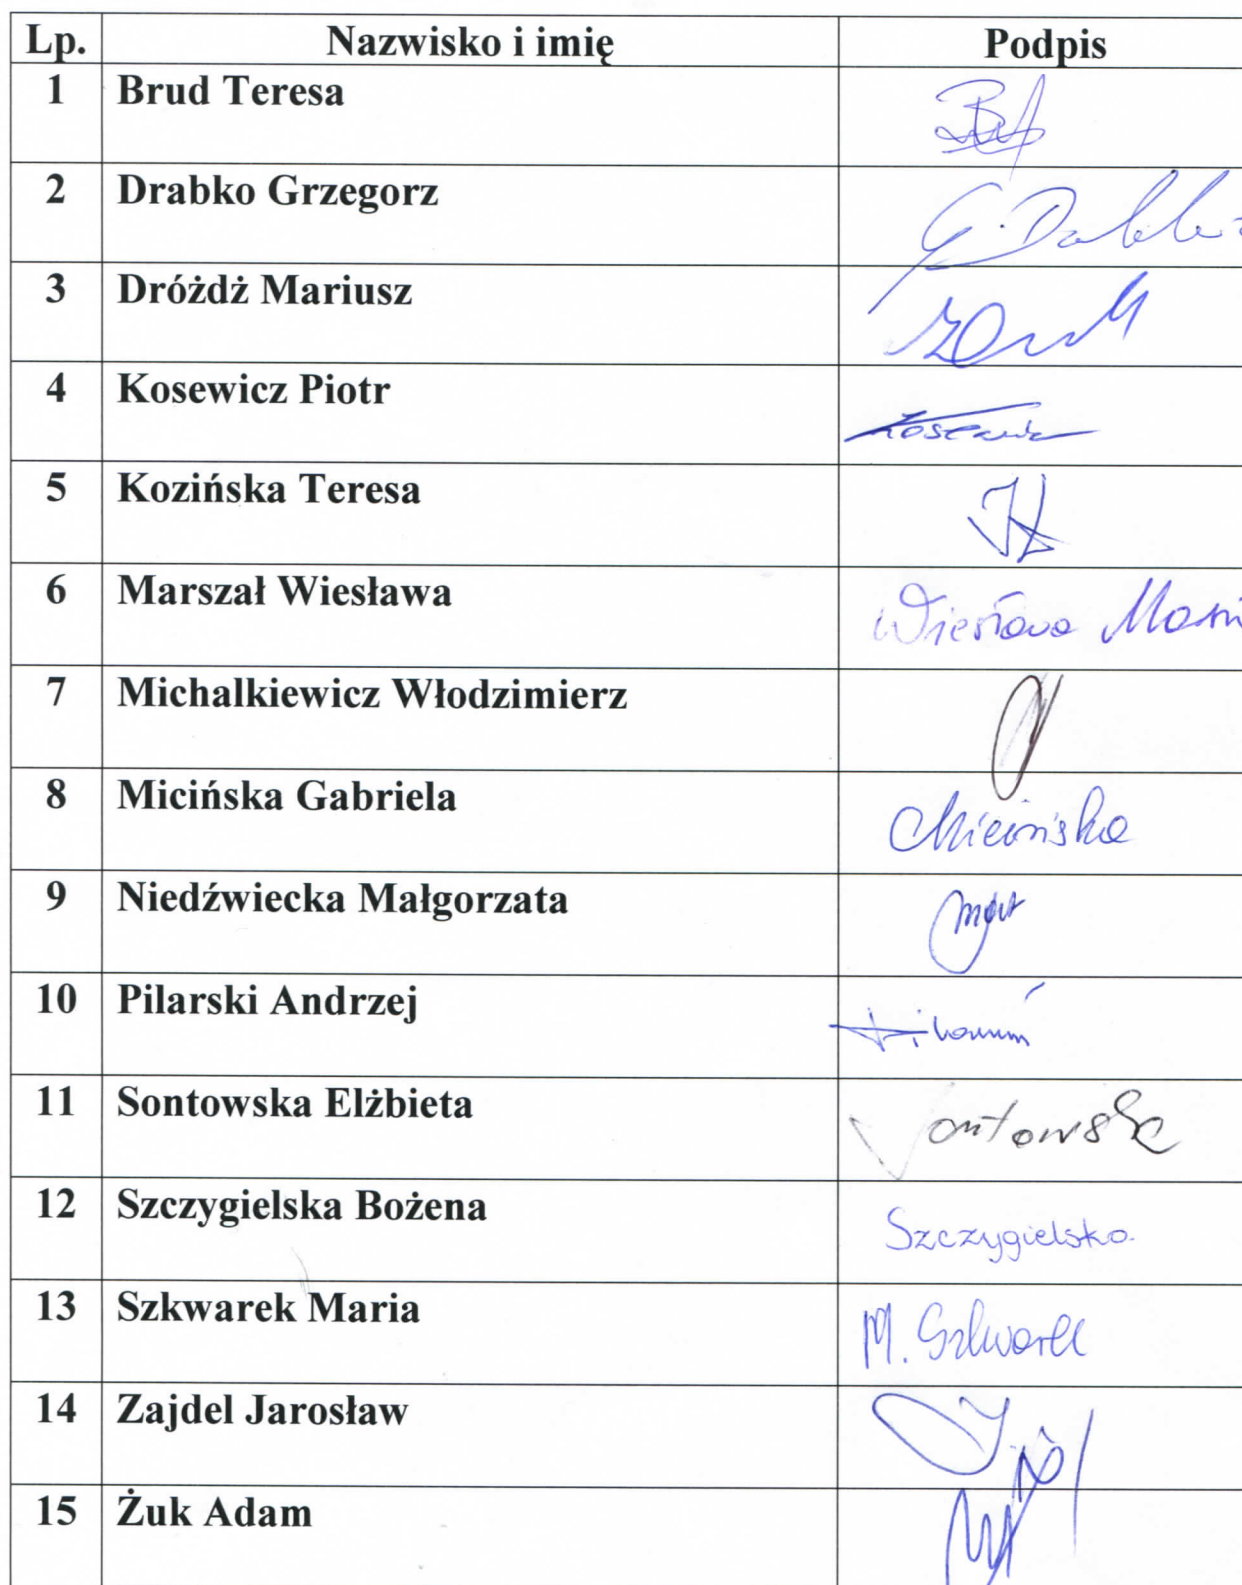 Lp. Nazwisko i imię Podpis
1 Brud Teresa
2 Drabko Grzegorz
3 Dróżdż Mariusz
4 Kosewicz Piotr
5 Kozińska Teresa
6 Marszał Wiesława Wiesława
7 Michalkiewicz Włodzimierz
8 Micińska Gabriela Micińska
9 Niedźwiecka Małgorzata
10 Pilarski Andrzej
11 Sontowska Elżbieta Sontowska
12 Szczygielska Bożena Szczygielska
13 Szkwarek Maria M. Szkwarek
14 Zajdel Jarosław
15 Żuk Adam